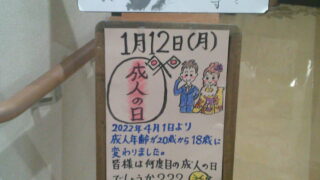 1月12日(月)
成人の日
2022年4月1日より
成人年齢が20歳から18歳に
変わりました。
皆様は何度目の成人の日
でしょうか???